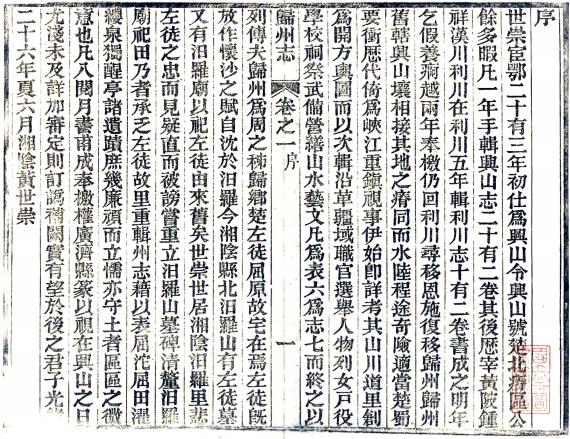 序
世崇宦鄂二十有三年初仕爲興山令興山號楚北瘠區公
餘多暇凡一年手輯興山志二十有二卷其後歷宰黃陂鍾
祥漢川利川在利川五年輯利川志十有二卷書成之明年
乞假養痾越兩年奉檄仍回利川尋移恩施復移歸州歸州
舊轄興山壤相接其地之瘠同而水陸程途奇險適當楚蜀
要衝歷代倚爲峽江重鎮視事伊始卽詳考其山川道里創
爲開方輿圖而以次輯沿革疆域職官選舉人物列女戸役
學校祠祭武備營繕山水藝文凡爲表六爲志七而終之以
歸州志
卷之一序
一
列傳夫歸州爲周之秭歸鄉楚左徒屈原故宅在焉左徒旣
放作懷沙之賦自沈於汨羅今湘陰縣北汨羅山有左徒墓
又有汨羅廟以祀左徒由來舊矣世崇世居湘陰汨羅里悲
左徒之忠而見疑直而被謗嘗重立汨羅山墓碑清釐汨羅
廟祀田乃者承乏左徒故里重輯州志藉以表屈沱屈田濯
纓泉獨醒亭諸遺蹟庶幾廉頑而立懦亦守土者區區之微
意也凡八閱月書甫成奉檄權廣濟縣篆以視在興山之日
尤淺未及詳加審定則訂譌補闕實有望於後之君子光緒
二十六年夏六月湘陰黃世崇